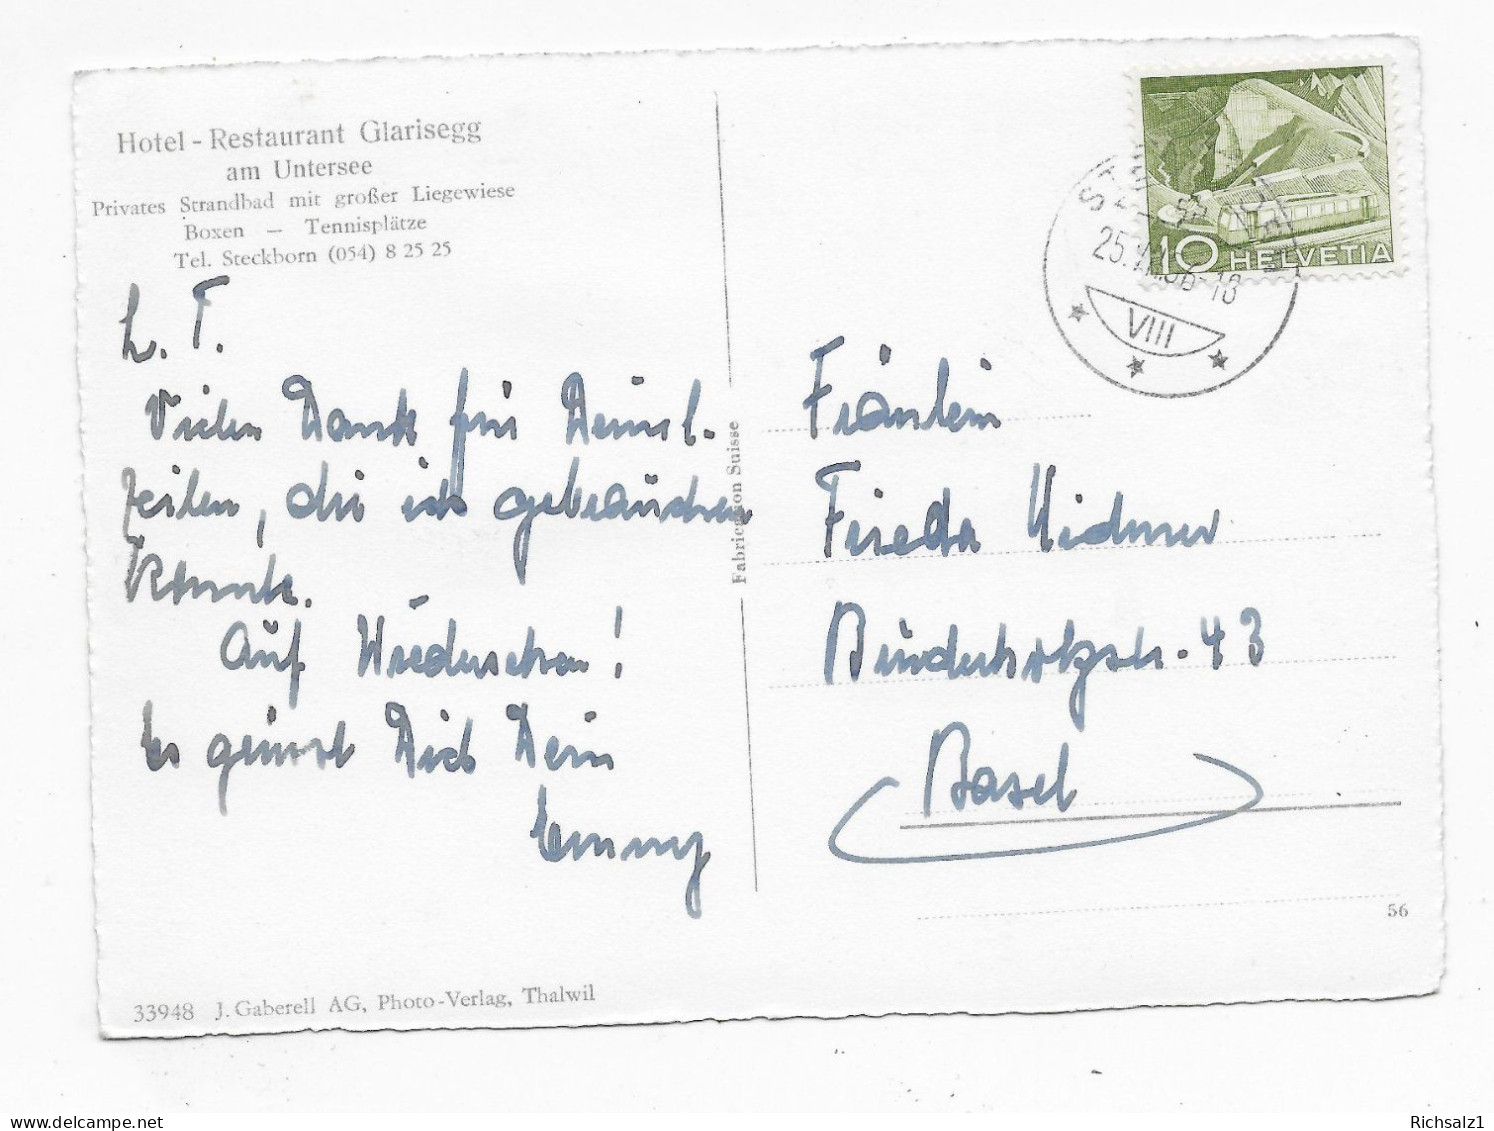 Hotel - Restaurant Glarisegg
am Untersee
Privates Strandbad mit großer Liegewiese
Boxen — Tennisplätze
Tel. Steckborn (054) 8 25 25
L. T.
Vielen Dank für Deine l.
Zeilen, die ich gebrauchen
konnte.
Auf Wiedersehen!
Es grüsst Dich Dein
Emmy
Fabrication Suisse
10 HELVETIA
VIII
Fräulein
Frieda Widmer
Bündenholzstr. 43
Basel
56
33948 J. Gaberell AG, Photo-Verlag, Thalwil
Richsalz1